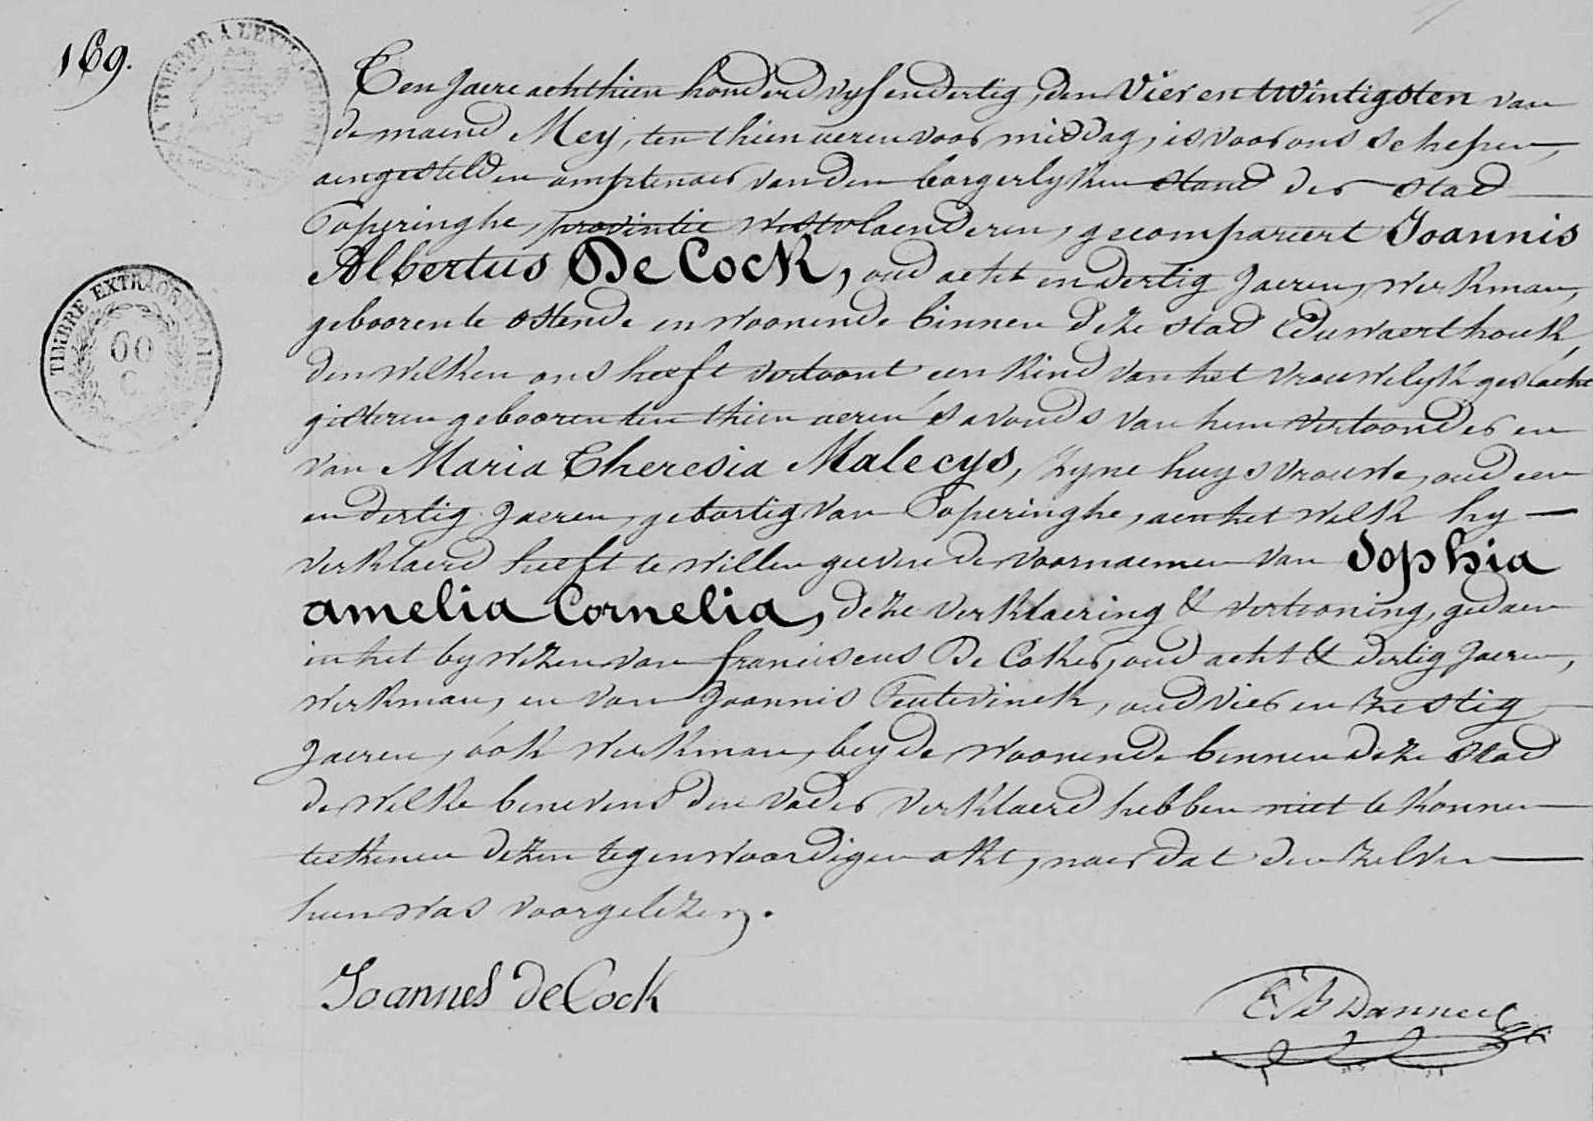 169.
A TIMBRER A L'EXTRAORDINAIRE
TIMBRE EXTRAORDINAIRE
60
C
Een Jaere achthien honderd vyf en dertig, den Vier en twintigsten van
de maend Mey, ten thien ueren voor middag, is voor ons schepen,
aengestelden amptenaer van den borgerlyken stand der stad
Poperinghe, provintie Westvlaenderen, gecompareert Joannis
Albertus De Cock, oud acht en dertig Jaeren, Werkman,
gebooren te Ostende en woonende binnen deze stad Eduwaerthouk,
den welken ons heeft vertoont een kind van het vrouwelyk geslacht
gisteren gebooren ten thien ueren 's avonds van hem vertoonder en
van Maria Theresia Malecys, zyne huysvrouwe, oud een
en dertig Jaeren, gebortig van Poperinghe, aen het welk hy
verklaerd heeft te willen geeven de voornaemen van Sophia
amelia Cornelia, deze verklaering & vertooning, gedaen
in het bywezen van franciscus De Coker, oud acht & dertig Jaeren,
Werkman, en van Joannis, oud vier en zestig
Jaeren, ook Werkman, beyde Woonende binnen deze stad
de welke benevens den vader verklaerd hebben niet te konnen
teekenen dezen tegenwoordigen akt, naer dat den zelven
hun was voorgelezen.
Joannes de Cock
Danneel